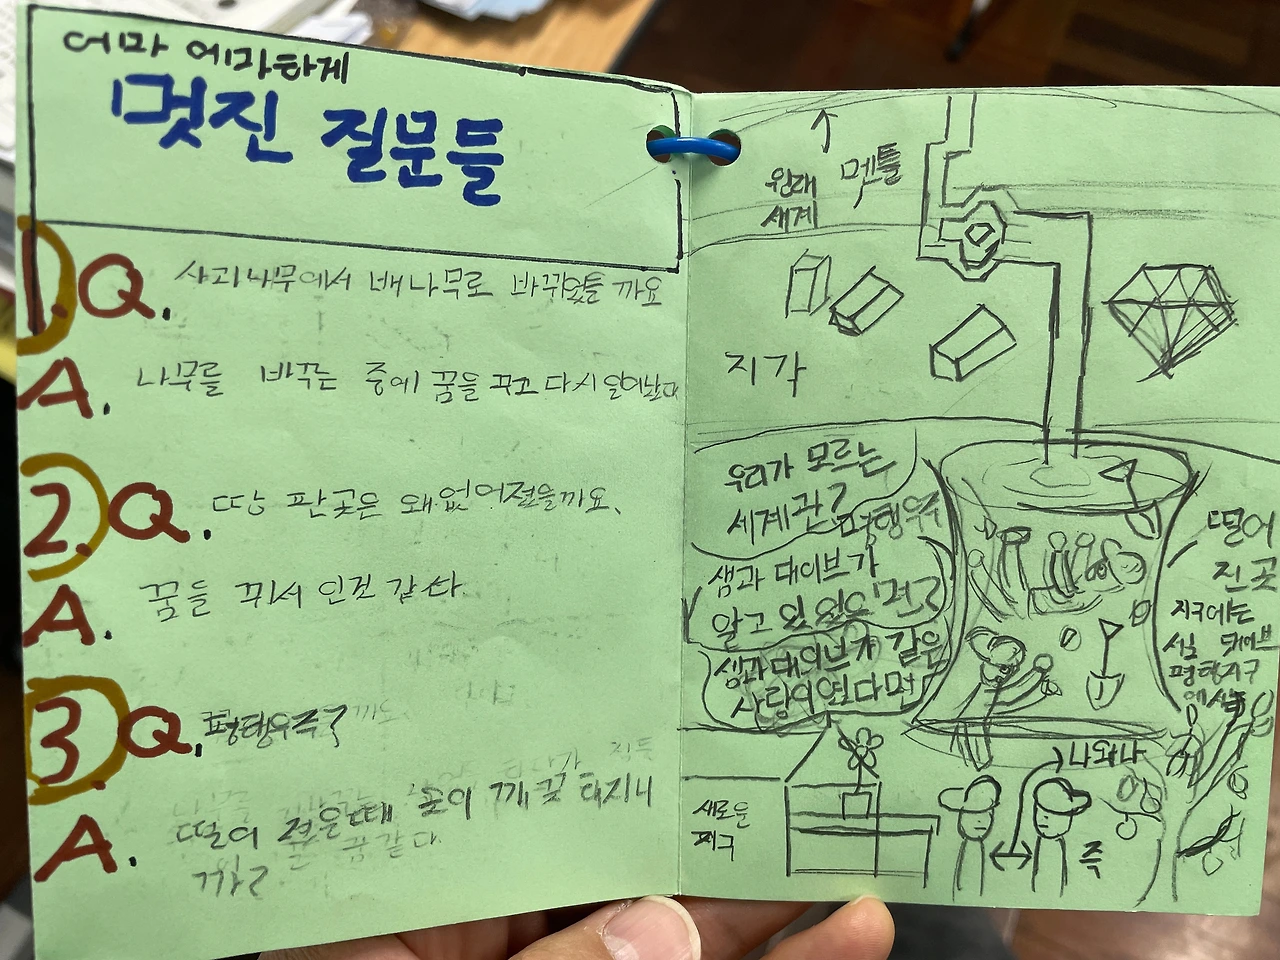 어마 어마하게
멋진 질문들
1. Q. 사과나무에서 배나무로 바뀌었을 까요
A. 나무를 바꾸는 중에 꿈을 꾸고 다시 일어났다
2. Q. 땅 판곳은 왜 없어졌을까요.
A. 꿈을 꿔서 인것 같다.
3. Q. 평행우주?
A. 떨어 졌을때 눈이 깨끗 해지니
까?
↑
원래
세계
멘틀
지각
우리가 모르는
세계관?
평행우주
샘과 데이브가
알고 있었으면?
샘과 데이브가 같은
사람이였다면
떨어
진곳
지구에는
샘 데이브
평행지구
에
나와나
새로운
지구
즉